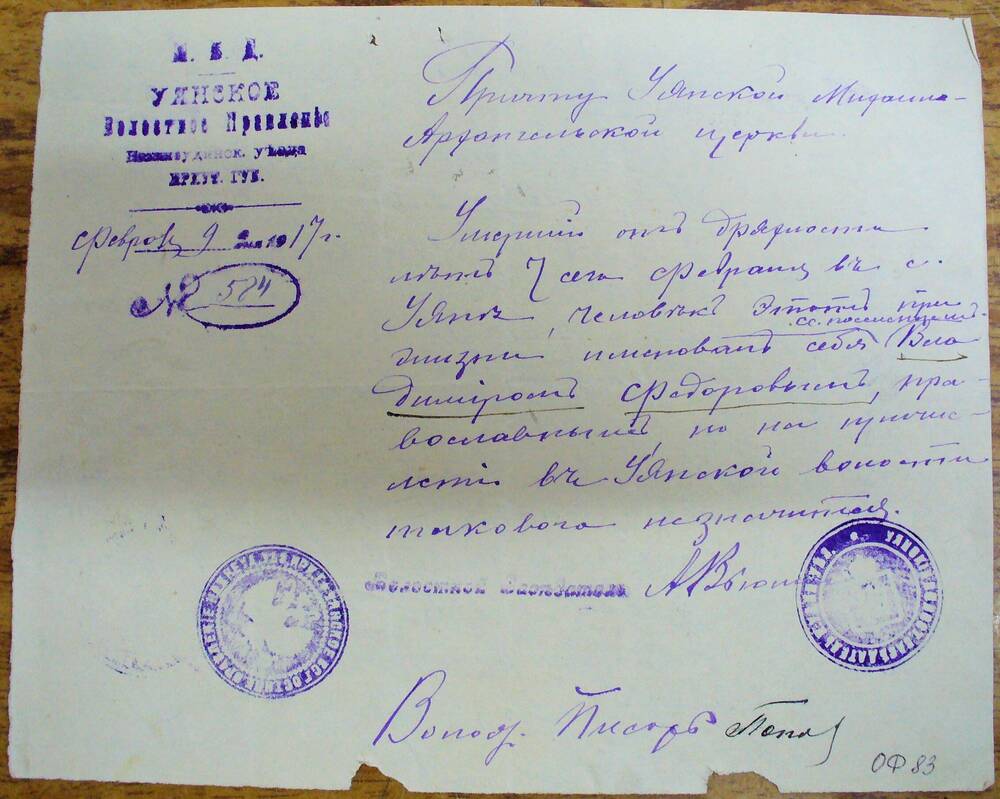 М. В. Д.
УЯНСКОЕ
Волостное Правленіе
Нижнеудинск. уѣзда
ИРКУТ. ГУБ.
Феврал 9 дня 1917 г.
№ 584
Причту Уянской Михаило-
Архангельской церкви.
Умерший отъ дряхлости
лѣтъ 7 сего февраля въ с.
Уянѣ, человѣкъ этотъ при
сс. поселенецъ
жизни именовалъ себя Вла
диміромъ Федоровымъ, пра-
вославный, но на причис-
леніи въ Уянской волости
таковога незначится.
Волостной Засѣдатель
Волос. Писарь Попов
ОФ 83